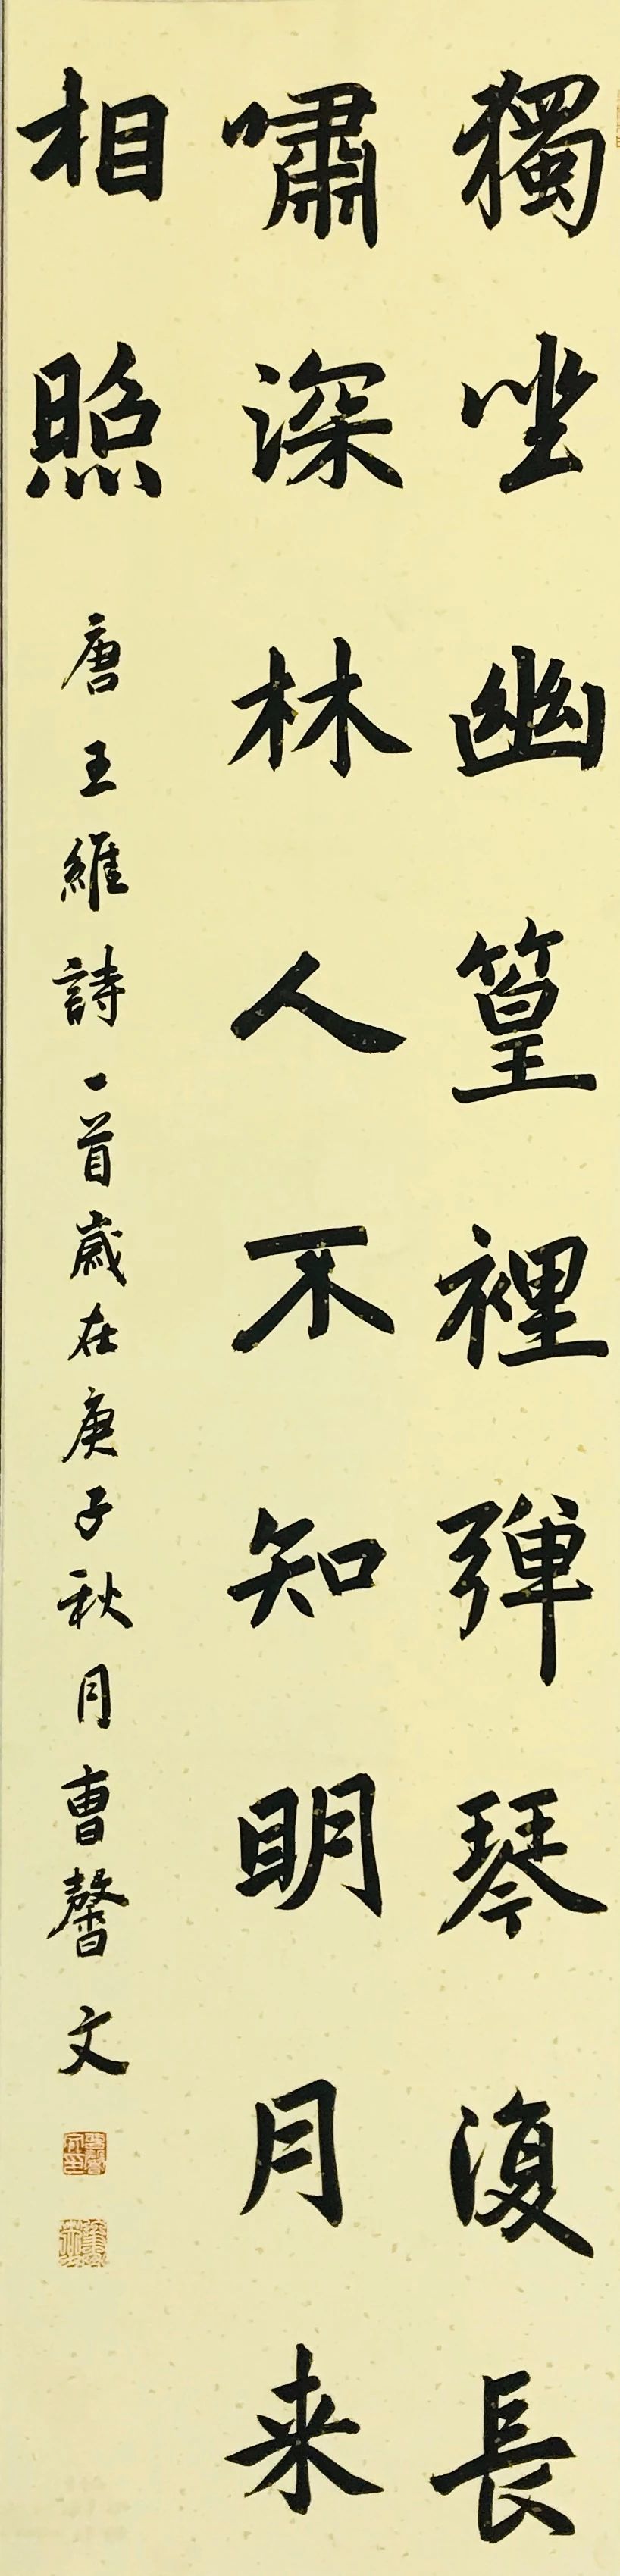 獨坐幽篁裡弹琴復長
嘯深林人不知明月来
相照
唐王維詩一首歲在庚子秋月曹馨文